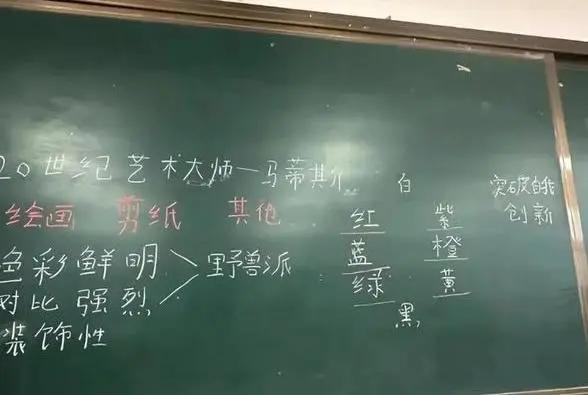 20世纪艺术大师—马蒂其尔
绘画 剪纸 其他
色彩鲜明
对比强烈
装饰性
野兽派
白
红 紫
蓝 橙
绿 黄
黑
突破自我
创新